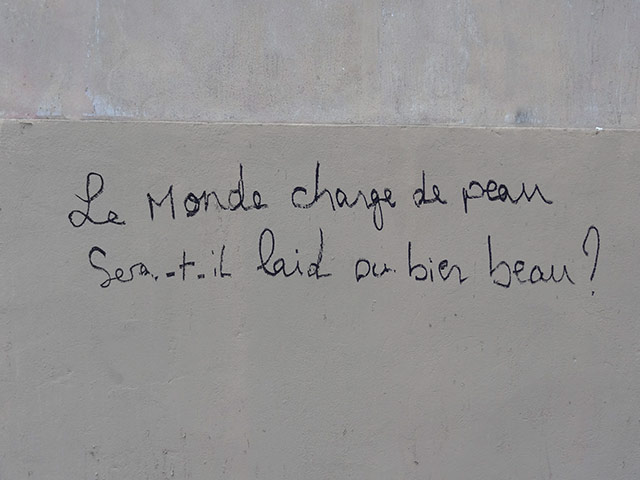 Le Monde change de peau
Sera-t-il laid ou bien beau ?